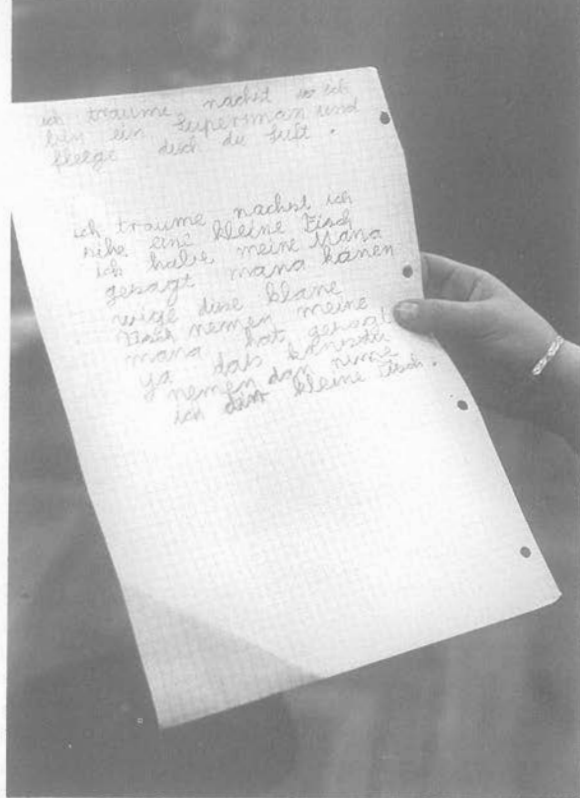 ich traume nachst wo ich
bin ein Superman und
fleege disch die luft.
ich traume nachst ich
sihe eine kleine Tisch
ich habe meine Mana
gesagt mana känen
wige dise klane
Tisch nemen meine
mana hat gesagt
ya dass kanesdu
nemen dan nime
ich kleine Tisch.